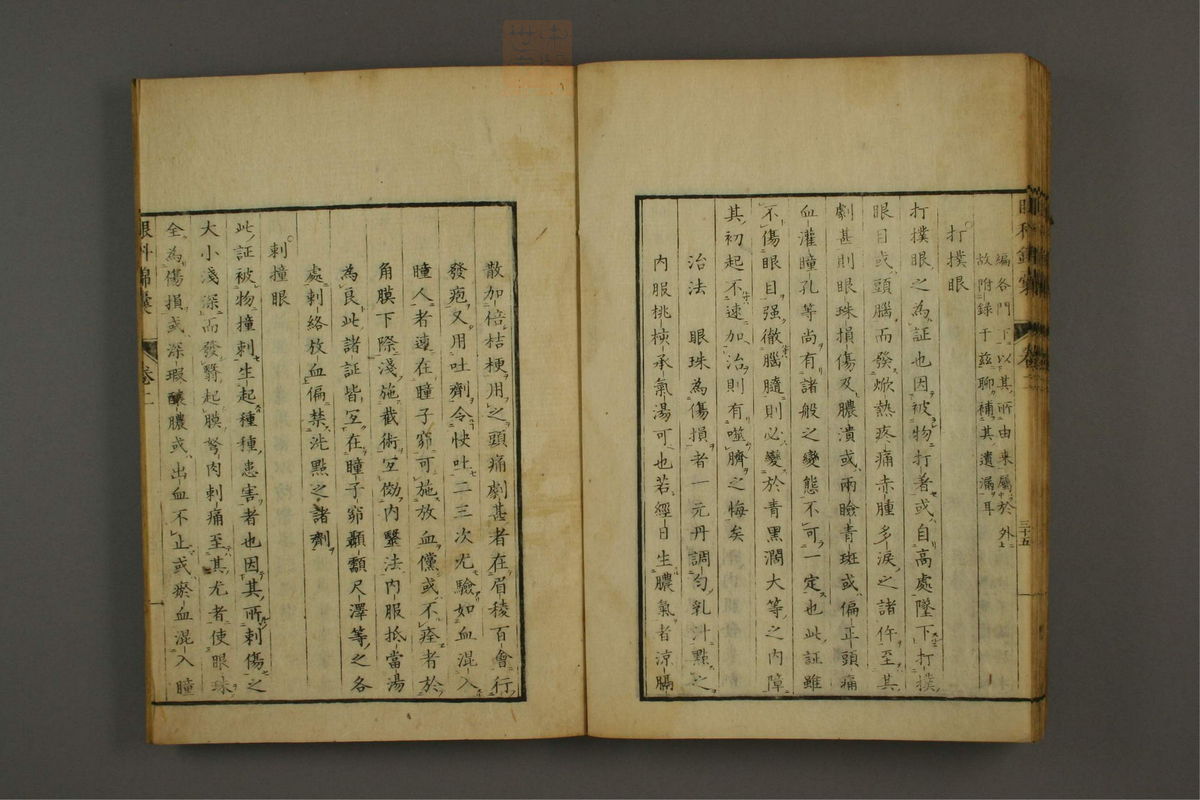 眼科錦囊 卷二 三十五
編各門丁以其所由来屬於外
故附録于茲聊補其遺漏耳
打撲眼
打撲眼之為証也因被物打者或自高處墜下打撲
眼目或頭腦而發焮熱疼痛赤腫多淚之諸件至其
劇甚則眼珠損傷及膿潰或兩瞼青斑或偏正頭痛
血灌瞳孔等尚有諸般之變態不可一定也此証雖
不傷眼目强徹腦髓則必變於青黑潤大等之内障
其初起不速加治則有噬臍之悔矣
治法 眼珠為傷損者一元丹調勻乳汁點之
内服桃核承氣湯可也若經日生膿氣者涼膈
散加倍桔梗用之頭痛劇甚者在眉稜百會行
發疱又用吐劑令快吐二三次尤驗如血混入
瞳人者速在瞳子窌可施放血儻或不痊者於
角膜下際淺施截術宜傚内翳法内服抵當湯
為良此諸証皆宜在瞳子窌顴髎尺澤等之各
處刺絡放血偏禁洗點之諸劑
刺撞眼
此証被物撞刺生起種種患害者也因其所刺傷之
大小淺深而發翳起膜努肉刺痛至其尤者使眼珠
全為傷損或深瑕釀膿或出血不止或瘀血混入瞳
眼科錦囊 卷二